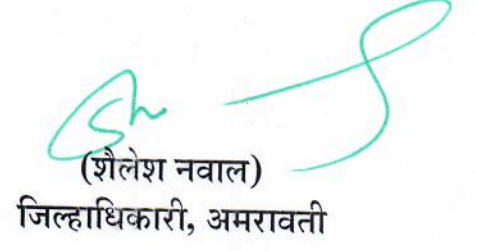 (शैलेश नवाल)
जिल्हाधिकारी, अमरावती